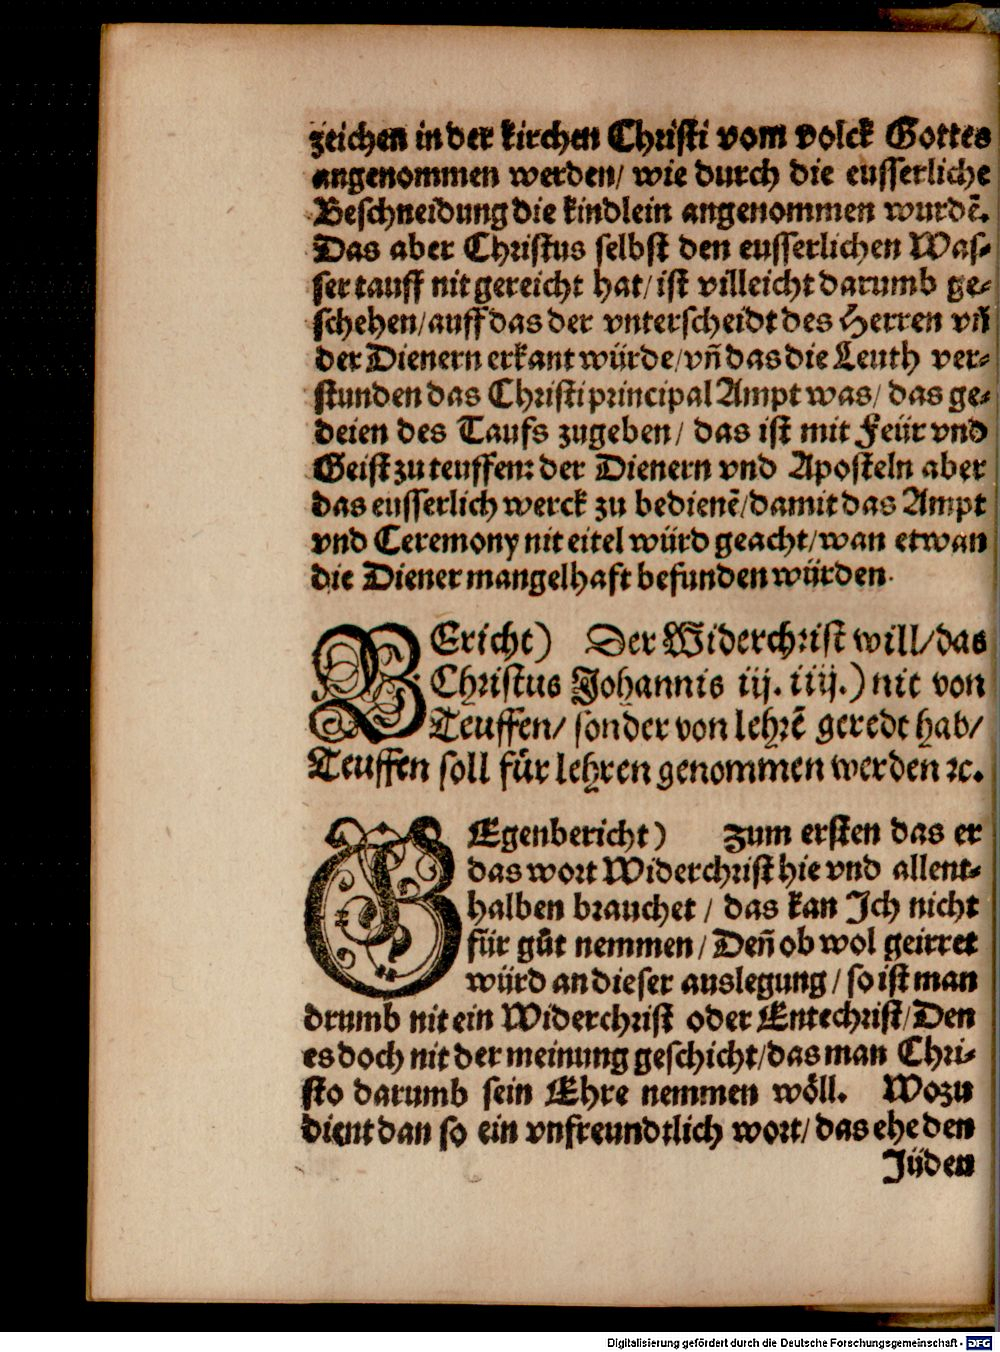 zeichen in der kirchen Christi vom volck Gottes
angenommen werden/ wie durch die eusserliche
Beschneidung die kindlein angenommen wurdẽ.
Das aber Christus selbst den eusserlichen Was⸗
ser tauff nit gereicht hat/ ist villeicht darumb ge⸗
schehen/ auff das der vnterscheidt des Herren vñ
der Dienern erkant würde/ vñ das die Leuth ver⸗
stunden das Christi principal Ampt was/ das ge⸗
deien des Taufs zugeben/ das ist mit Feür vnd
Geist zu teuffen: der Dienern vnd Aposteln aber
das eusserlich werck zu bedienẽ/ damit das Ampt
vnd Ceremony nit eitel würd geacht/ wan etwan
die Diener mangelhaft befunden würden.
BEricht) Der Widerchrist will/ das
Christus Johannis iij. iiij.) nit von
Teuffen/ sonder von lehrẽ geredt hab/
Teuffen soll für lehren genommen werden ꝛc.
GEgenbericht) Zum ersten das er
das wort Widerchrist hie vnd allent⸗
halben brauchet / das kan Jch nicht
für gůt nemmen/ Deñ ob wol geirret
würd an dieser auslegung / so ist man
drumb nit ein Widerchrist oder Entechrist/ Den
es doch nit der meinung geschicht/ das man Chri⸗
sto darumb sein Ehre nemmen wöll. Wozu
dient dan so ein vnfreundtlich wort/ das ehe den
Jüden
Digitalisierung gefördert durch die Deutsche Forschungsgemeinschaft - DFG